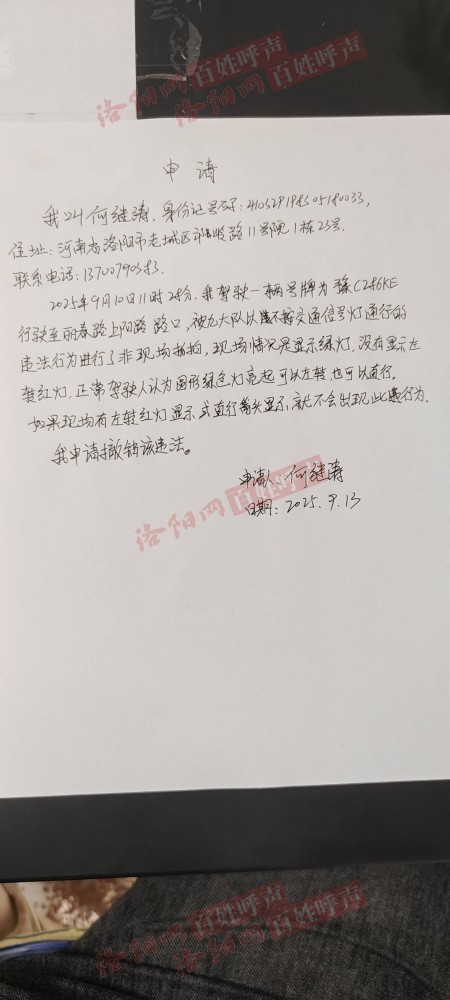 洛阳网百姓呼声
洛阳网百姓呼声
申请
我叫何继涛,身份证号码:410329198305180033,
住址:河南省洛阳市老城区 路11号院1栋25号.
联系电话:13700790583.
2025年9月10日11时28分.我驾驶一辆号牌为豫C286KE
行驶至丽春路上阳路路口,被九大队以 不按交通信号灯通行的
违法行为进行了非现场抓拍,现场情况是显示绿灯.没有显示左
转红灯.正常驾驶人认为圆形绿色灯亮起可以左转也可以直行.
如果现场有左转红灯显示或直行箭头显示,就不会出现此 行为.
我申请撤销该违法。
申请人:何继涛
日期:2025.9.13
洛阳网百姓呼声
洛阳网百姓呼声
洛阳网百姓呼声